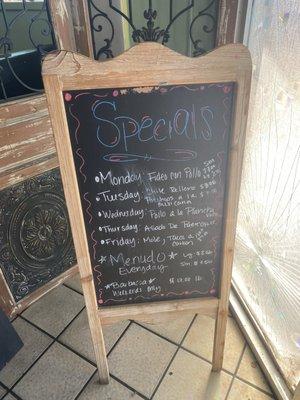 Specials
Monday: Fideo con Pollo
Tuesday: Chile Relleno
Wednesday: Pollo a la Plancha
Thursday: Asado De Puerco
Friday: Mole, Tacos a
carbon
Menudo
Everyday
Barbacoa
Weekends Only